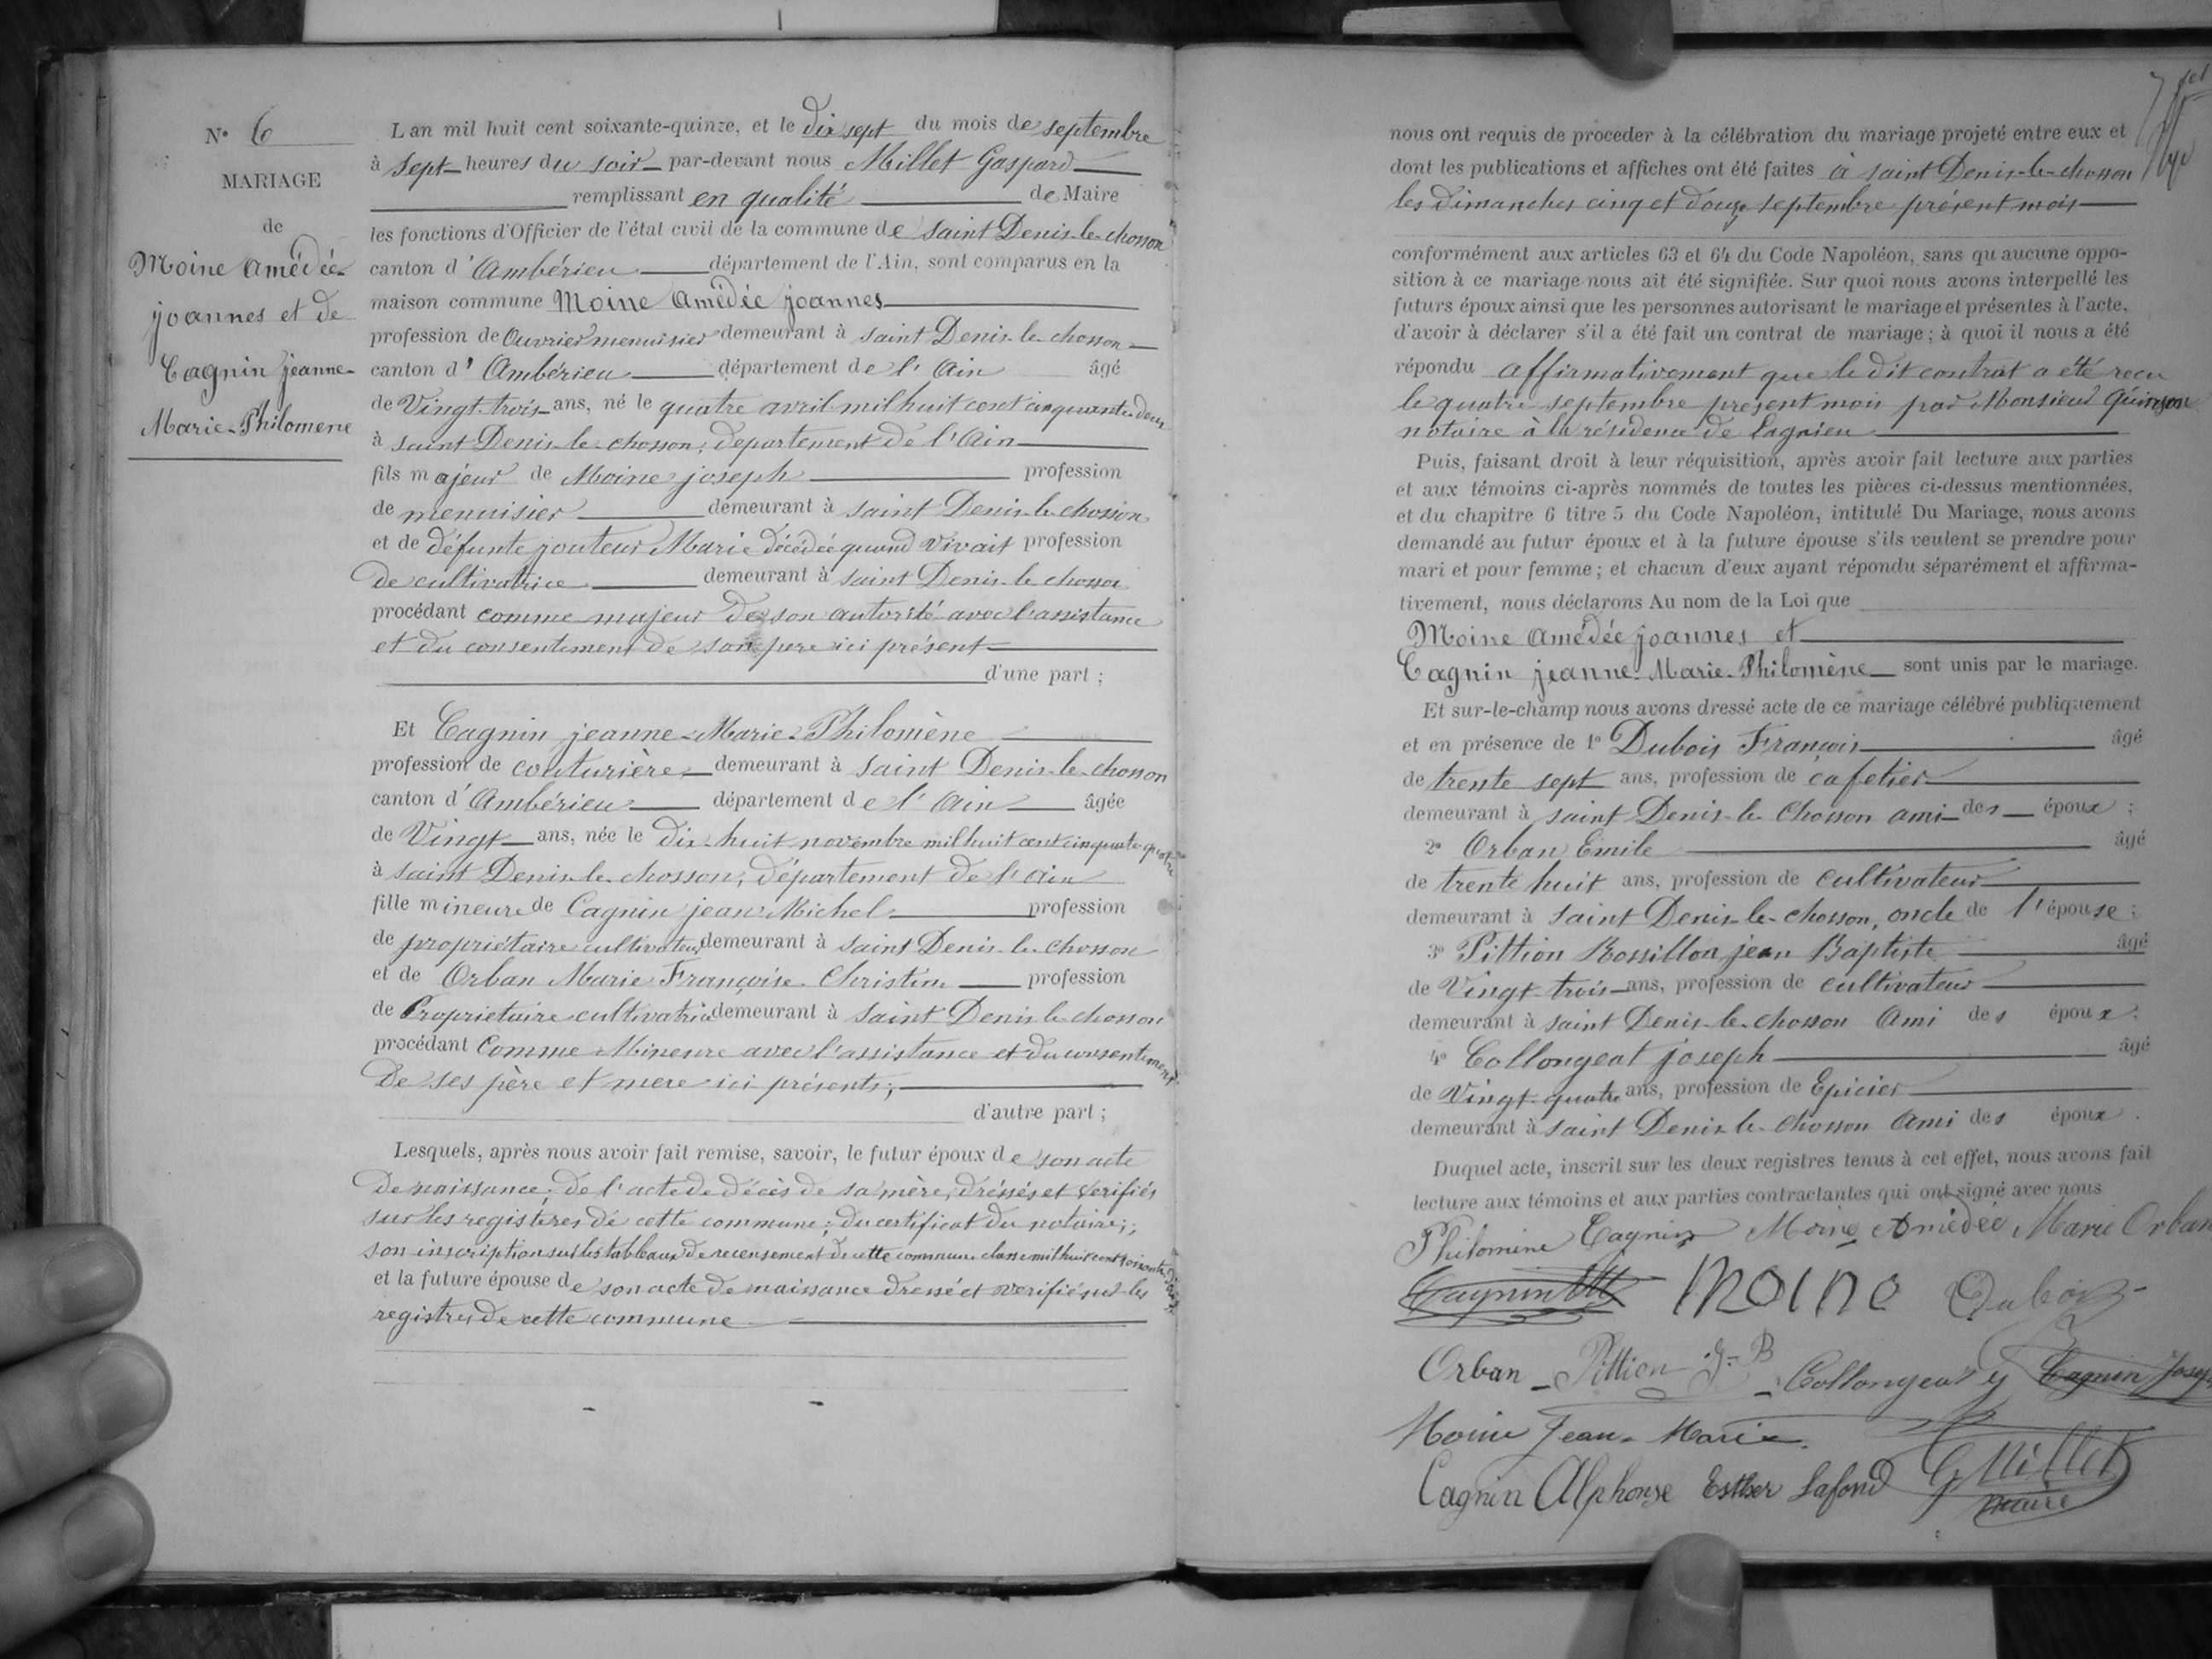 N° 6
MARIAGE
de
Moine Amédée
joannes et de
Cagnin jeanne-
Marie-Philomene
L'an mil huit cent soixante-quinze, et le dix sept du mois de septembre
à sept heures du soir par-devant nous Millet Gaspard
remplissant en qualité de Maire
les fonctions d'Officier de l'état civil de la commune de saint Denis-le-chosson
canton d'Ambérieu département de l'Ain, sont comparus en la
maison commune Moine Amédée joannes
profession de Ouvrier menuisier demeurant à saint Denis-le-chosson
canton d'Ambérieu département de l'Ain âgé
de Vingt-trois ans, né le quatre avril mil huit cent cinquante-deux
à saint Denis-le-chosson, département de l'Ain
fils majeur de Moine joseph profession
de menuisier demeurant à saint Denis-le-chosson
et de défunte jouteur Marie décédée quand vivait profession
de cultivatrice demeurant à saint Denis-le-chosson
procédant comme majeur de son autorité avec l'assistance
et du consentement de son père ici présent
d'une part ;
Et Cagnin jeanne-Marie-Philomène
profession de couturière demeurant à saint Denis-le-chosson
canton d'Ambérieu département de l'Ain âgée
de Vingt ans, née le dix-huit novembre mil huit cent cinquante-quatre
à saint Denis-le-chosson, département de l'Ain
fille mineure de Cagnin jean Michel profession
de propriétaire cultivateur demeurant à saint Denis-le-chosson
et de Orban Marie Françoise Christine profession
de Propriétaire cultivatrice demeurant à saint Denis le chosson
procédant Comme Mineure avec l'assistance et du consentement
de ses père et mere ici présents,
d'autre part ;
Lesquels, après nous avoir fait remise, savoir, le futur époux de son acte
de naissance, de l'acte de décès de sa mère, dréssés et verifiés
sur les registeres de cette commune ; du certificat du notaire ;
son inscription sur les tableaux de recensement de cette commune classe mil huit cent soixante douze
et la future épouse de son acte de naissance dressé et verifié sur les
registres de cette commune
nous ont requis de procéder à la célébration du mariage projeté entre eux et
dont les publications et affiches ont été faites à saint Denis-le-chosson
les dimanches cinq et douze septembre présent mois
conformément aux articles 63 et 64 du Code Napoléon, sans qu'aucune oppo-
sition à ce mariage nous ait été signifiée. Sur quoi nous avons interpellé les
futurs époux ainsi que les personnes autorisant le mariage et présentes à l'acte,
d'avoir à déclarer s'il a été fait un contrat de mariage ; à quoi il nous a été
répondu affirmativement que le dit contrat a été recu
le quatre septembre présent mois par Monsieur Quinson
notaire à la résidence de Lagnieu
Puis, faisant droit à leur réquisition, après avoir fait lecture aux parties
et aux témoins ci-après nommés de toutes les pièces ci-dessus mentionnées,
et du chapitre 6 titre 5 du Code Napoléon, intitulé Du Mariage, nous avons
demandé au futur époux et à la future épouse s'ils veulent se prendre pour
mari et pour femme ; et chacun d'eux ayant répondu séparément et affirma-
tivement, nous déclarons Au nom de la Loi que
Moine Amédée joannes et
Cagnin jeanne-Marie-Philomène sont unis par le mariage.
Et sur-le-champ nous avons dressé acte de ce mariage célébré publiquement
et en présence de 1° Dubois François âgé
de trente sept ans, profession de cafetier
demeurant à saint Denis-le-Chosson ami des époux ;
2° Orban Emile âgé
de trente huit ans, profession de cultivateur
demeurant à saint Denis-le-chosson, oncle de l'épouse ;
3° Pittion Rossillon jean Baptiste âgé
de Vingt-trois ans, profession de cultivateur
demeurant à saint Denis-le-chosson Ami des époux ;
4° Collongeat joseph âgé
de Vingt-quatre ans, profession de Epicier
demeurant à saint Denis-le-Chosson Ami des époux.
Duquel acte, inscrit sur les deux registres tenus à cet effet, nous avons fait
lecture aux témoins et aux parties contractantes qui ont signé avec nous
Philomine Cagnin Moine Amédée Marie Orban
Cagnin Moine Dubois
Orban Pittion J-B Collongeat J Cagnin Josep
Moine Jean-Marie
Cagnin Alphonse Esther Lafond G Millet
maire